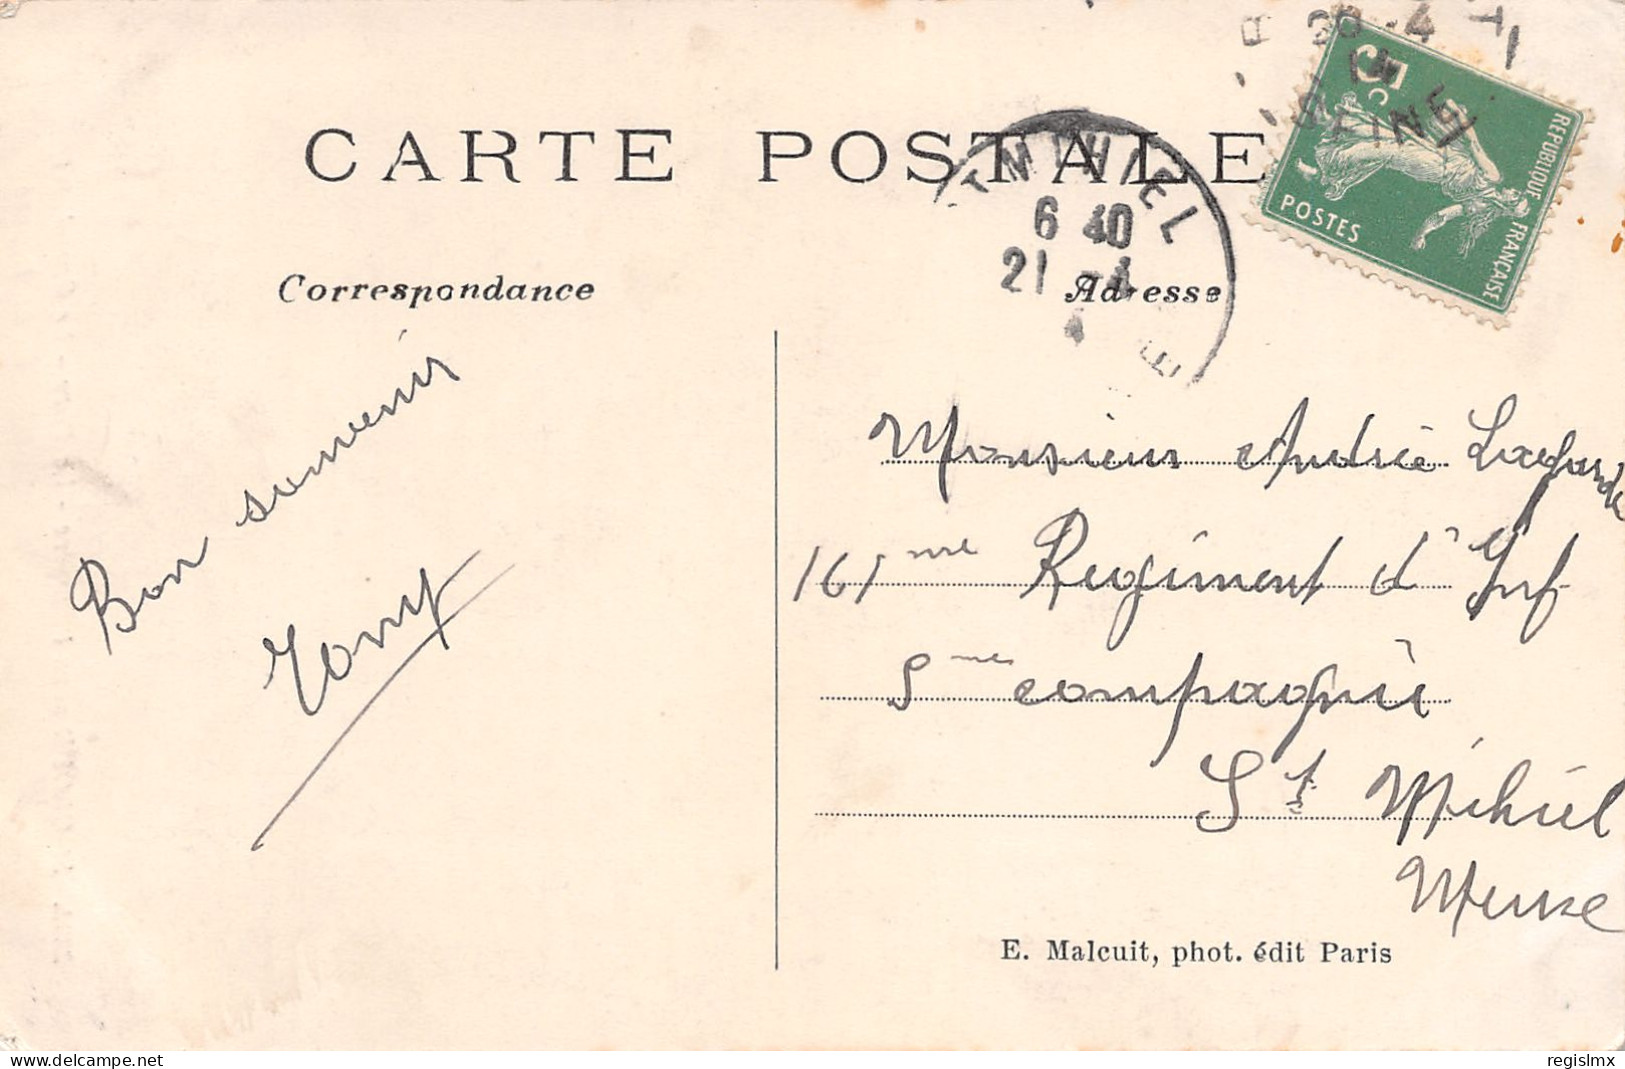 CARTE POSTALE
Correspondance
Adresse
5
C
REPUBLIQUE FRANÇAISE
POSTES
20 -4
SEINE
ST MIHIEL
6 40
21 -4
E
Bon souvenir
Tony
Monsieur André
161me Regiment d'Inf
5me compagnie
St Mihiel
Meuse
E. Malcuit, phot. édit Paris
delcampe.net
regislmx